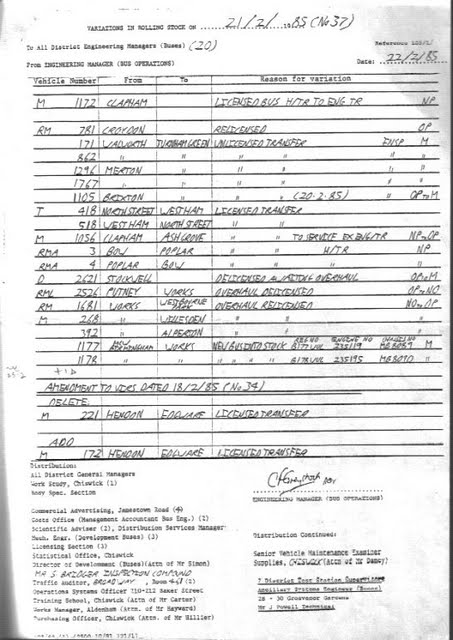 VARIATIONS IN ROLLING STOCK ON 21/2/1985 (No 37)
To All District Engineering Managers (Buses) (20)
Reference 103/1/
From ENGINEERING MANAGER (BUS OPERATIONS)
Date: 22/2/85
Vehicle Number From To Reason for variation
M 1172 CLAPHAM LICENSED BUS H/TR TO ENG TR NP
RM 781 CROYDON RELICENSED OP
171 WALWORTH TURNHAM GREEN UNLICENSED TRANSFER ENSP M
862 " " " " " "
1296 MERTON " " " " "
1767 " " " " " "
1105 BRIXTON " " " (20.2.85) " OP TO M
T 418 NORTH STREET WEST HAM LICENSED TRANSFER
518 WEST HAM NORTH STREET " "
M 1056 CLAPHAM ASH GROVE " " TO SERVICE EX ENG/TR NP TO OP
RMA 3 BOW POPLAR " " H/TR NP
RMA 4 POPLAR BOW " " " "
D 2621 STOCKWELL DELICENSED AWAITING OVERHAUL OP TO M
RML 2526 PUTNEY WORKS OVERHAUL DELICENSED OP TO NO
RM 1681 WORKS WESTBOURNE PARK OVERHAUL RELICENSED NO TO OP
M 268 " WILLESDEN " " "
392 " ALPERTON " " "
REG NO ENGINE NO CHASSIS NO
1177 BIRMINGHAM WORKS NEW BUS INTO STOCK B177WUL 235119 MB8089 M
1178 " " " " " " B178WUL 235195 MB8090 "
AMENDMENT TO VIRS DATED 18/2/85 (No 34)
DELETE:
M 221 HENDON EDGWARE LICENSED TRANSFER
ADD
M 172 HENDON EDGWARE LICENSED TRANSFER
Distribution:
All District General Managers
Work Study, Chiswick (1)
Body Spec. Section
ENGINEERING MANAGER (BUS OPERATIONS)
Commercial Advertising, Jamestown Road (4)
Costs Office (Management Accountant Bus Eng.) (2)
Scientific Adviser (2), Distribution Services Manager
Mech. Engr. (Development Buses) (3)
Licensing Section (3)
Statistical Office, Chiswick
Director of Development (Buses)(Attn of Mr Simon)
MR S BRIDGER INSPECTION COMPOUND
Traffic Auditor, BROADWAY, Room 4&8 (2)
Operations Systems Officer 110-112 Baker Street
Training School, Chiswick (Attn of Mr Carter)
Works Manager, Aldenham (Attn. of Mr Hayward)
Purchasing Officer, Chiswick (Attn of Mr Hillier)
Distribution Continued:
Senior Vehicle Maintenance Examiner
Supplies, CHISWICK (Attn of Mr Damey)
7 District Test Station Supervisors
Ancillary Systems Engineer (Buses)
28 - 30 Grosvenor Gardens
Mr J Powell Technical